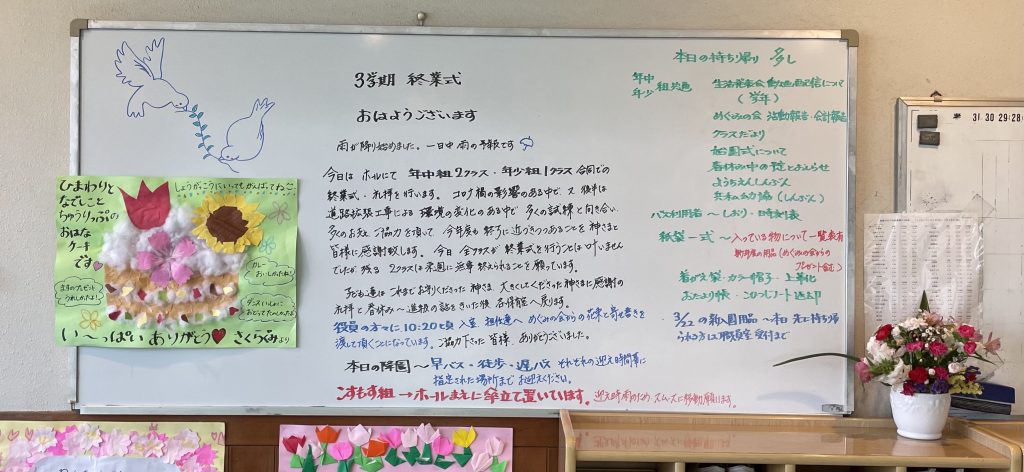 3学期 終業式
おはようございます
雨が降り始めました。一日中 雨の予報です
今日は ホールにて 年中組2クラス・年少組1クラス 合同での
終業式・礼拝を行います。コロナ禍の影響のある中で、又 後半は
道路拡張工事による 環境の変化のある中で、多くの試練と向き合い
多くの支えご協力を頂いて 今年度も 終了に近づきつつあることを 神さまと
皆様に感謝致します。今日 全クラスが 終業式を行うことは 叶いません
でしたが 残る 2クラスは来週に 無事 終えられることを願っています。
子ども達は これまでお守りくださった 神さま、大きくしてくださった 神さまに感謝の
礼拝と 春休み〜進級の話をきいた後 各保育室へ戻ります。
役員の方々に 10:20頃 入室 担任達へ めぐみの会からの花束と寄せ書きを
渡して頂くことになっています。ご協力下さった皆様、ありがとうございました。
本日の降園〜早バス・徒歩・遅バス それぞれの迎え時間帯に
指定された場所まで お迎えください。
こすもす組→ホールまえに傘立て置いています。迎え時 雨のため、スムーズに移動願います。
本日の持ち帰り 多し
年中
年少 組共通
生活発表会動画配信について
(学年)
めぐみの会 活動報告・会計報告
クラスだより
始園式について
春休み中の 錠とおしらせ
ようちえんしんぶん
バス利用者〜しおり・時刻表
紙袋一式〜入っている物について一覧表有
新年度の用品(めぐみの会からの
プレゼント含む)
着がえ袋・カラー帽子・上草化
おたより帳・こひつじノート返却
3/22の新入園用品〜本日 先に持ち帰
られる方は 職員室受付まで
31 30 29(28)
ひまわりと
なでしこと
ちゅうりっぷの
おはな
ケーキ
です♥
しょうがっこうにいってもがんばってね
カレー
おいしかったね!
ダンスいっしょに
おどってたのしかったね!
うれしかったよ!
い〜っぱい ありがとう♥ さくらぐみより